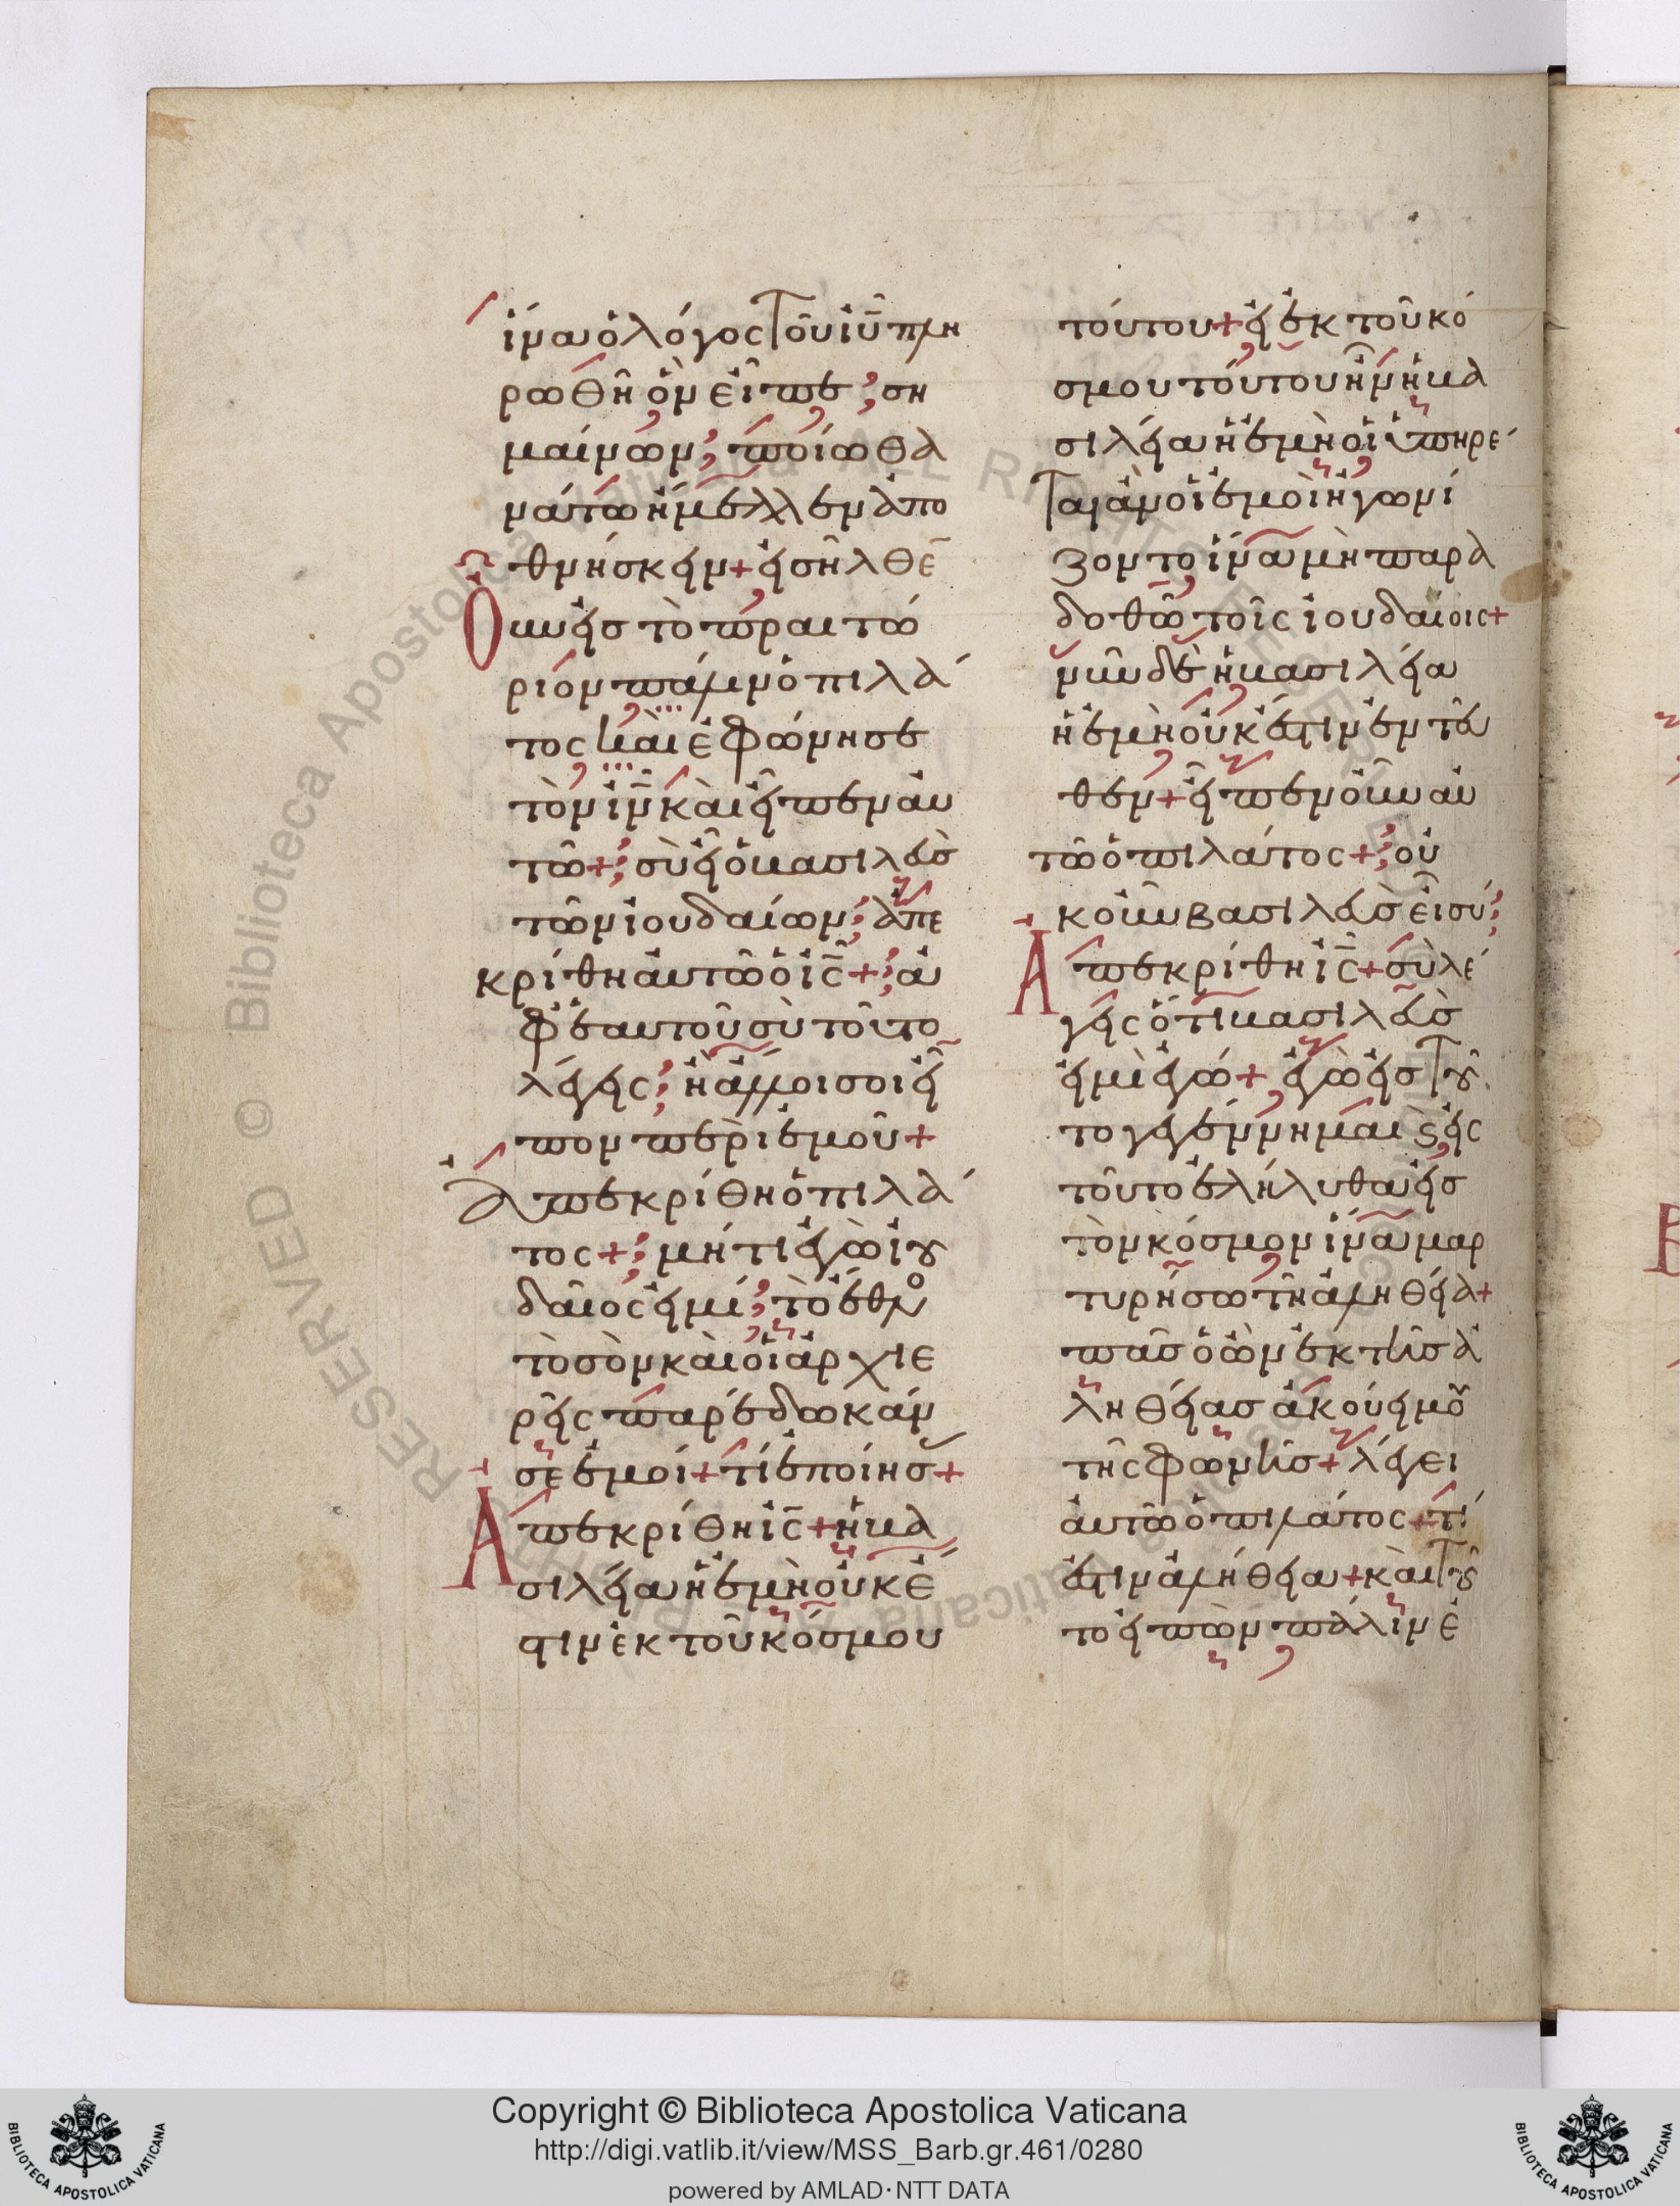 ἵνα ὁ λόγος τοῦ ἰῦ πλη
ρωθῆ ὃν εἶπε ση
μαίνων ποίω θα
νάτω ἤμελλεν ἀπο
θνήσκειν + εἰσῆλθε̄
Οὖν εἰς τὸ πραιτώ
ριον πάλιν ὁ πιλά
τος καὶ ἐφώνησε
τὸν ἰν̄ καὶ εἶπεν αὐ
τῶ + σὺ εἶ ὁ βασιλεὺς
τῶν ἰουδαίων ἀπε
κρίθη αὐτῶ ὁ ἰς̄ + ἀ
φ' ἑαυτοῦ σὺ τοῦτο
λέγεις ἢ ἄλλοι σοι εἶ
πον περὶ ἐμοῦ +
ἀπεκρίθη ὁ πιλά
τος + μήτι ἐγὼ ἰου
δαῖος εἰμί τὸ ἔθνο
τὸ σὸν καὶ οἱ ἀρχιε
ρεῖς παρέδωκάν
σε ἐμοί + τί ἐποίησ +
Ἀπεκρίθη ἰς̄ + ἡ βα
σιλεία ἡ ἐμὴ οὐκ ἔ
στιν ἐκ τοῦ κόσμου
τούτου + εἰ ἐκ τοῦ κό
σμου τούτου ἦν ἡ βα
σιλεία ἡ ἐμὴ οἱ ὑπηρέ
ται ἂν οἱ ἐμοὶ ἠγωνί
ζοντο ἵνα μὴ παρα
δοθῶ τοῖς ἰουδαίοις +
νῦν δὲ ἡ βασιλεία
ἡ ἐμὴ οὐκ ἔστιν ἐντεῦ
θεν + εἶπεν οὖν αὐ
τῶ ὁ πιλάτος + οὐ
κοῦν βασιλεὺς εἶ σύ
Ἀπεκρίθη ἰς̄ + σὺ λέ
γεις ὅτι βασιλεὺς
εἰμὶ ἐγώ + ἐγὼ εἰς τοῦ
το γεγέννημαι ϛ εἰς
τοῦτο ἐλήλυθα εἰς
τὸν κόσμον ἵνα μαρ
τυρήσω τῆ ἀληθεία +
πᾶς ὁ ὢν ἐκ τῆς ἀ
ληθείας ἀκούει μου
τῆς φωνῆς + λέγει
αὐτῶ ὁ πιλάτος + τί
ἐστιν ἀλήθεια + καὶ τοῦ
το εἰπὼν πάλιν ἐ
Copyright © Biblioteca Apostolica Vaticana
http://digi.vatlib.it/view/MSS_Barb.gr.461/0280
powered by AMLAD·NTT DATA
BIBLIOTECA APOSTOLICA VATICANA
BIBLIOTECA APOSTOLICA VATICANA